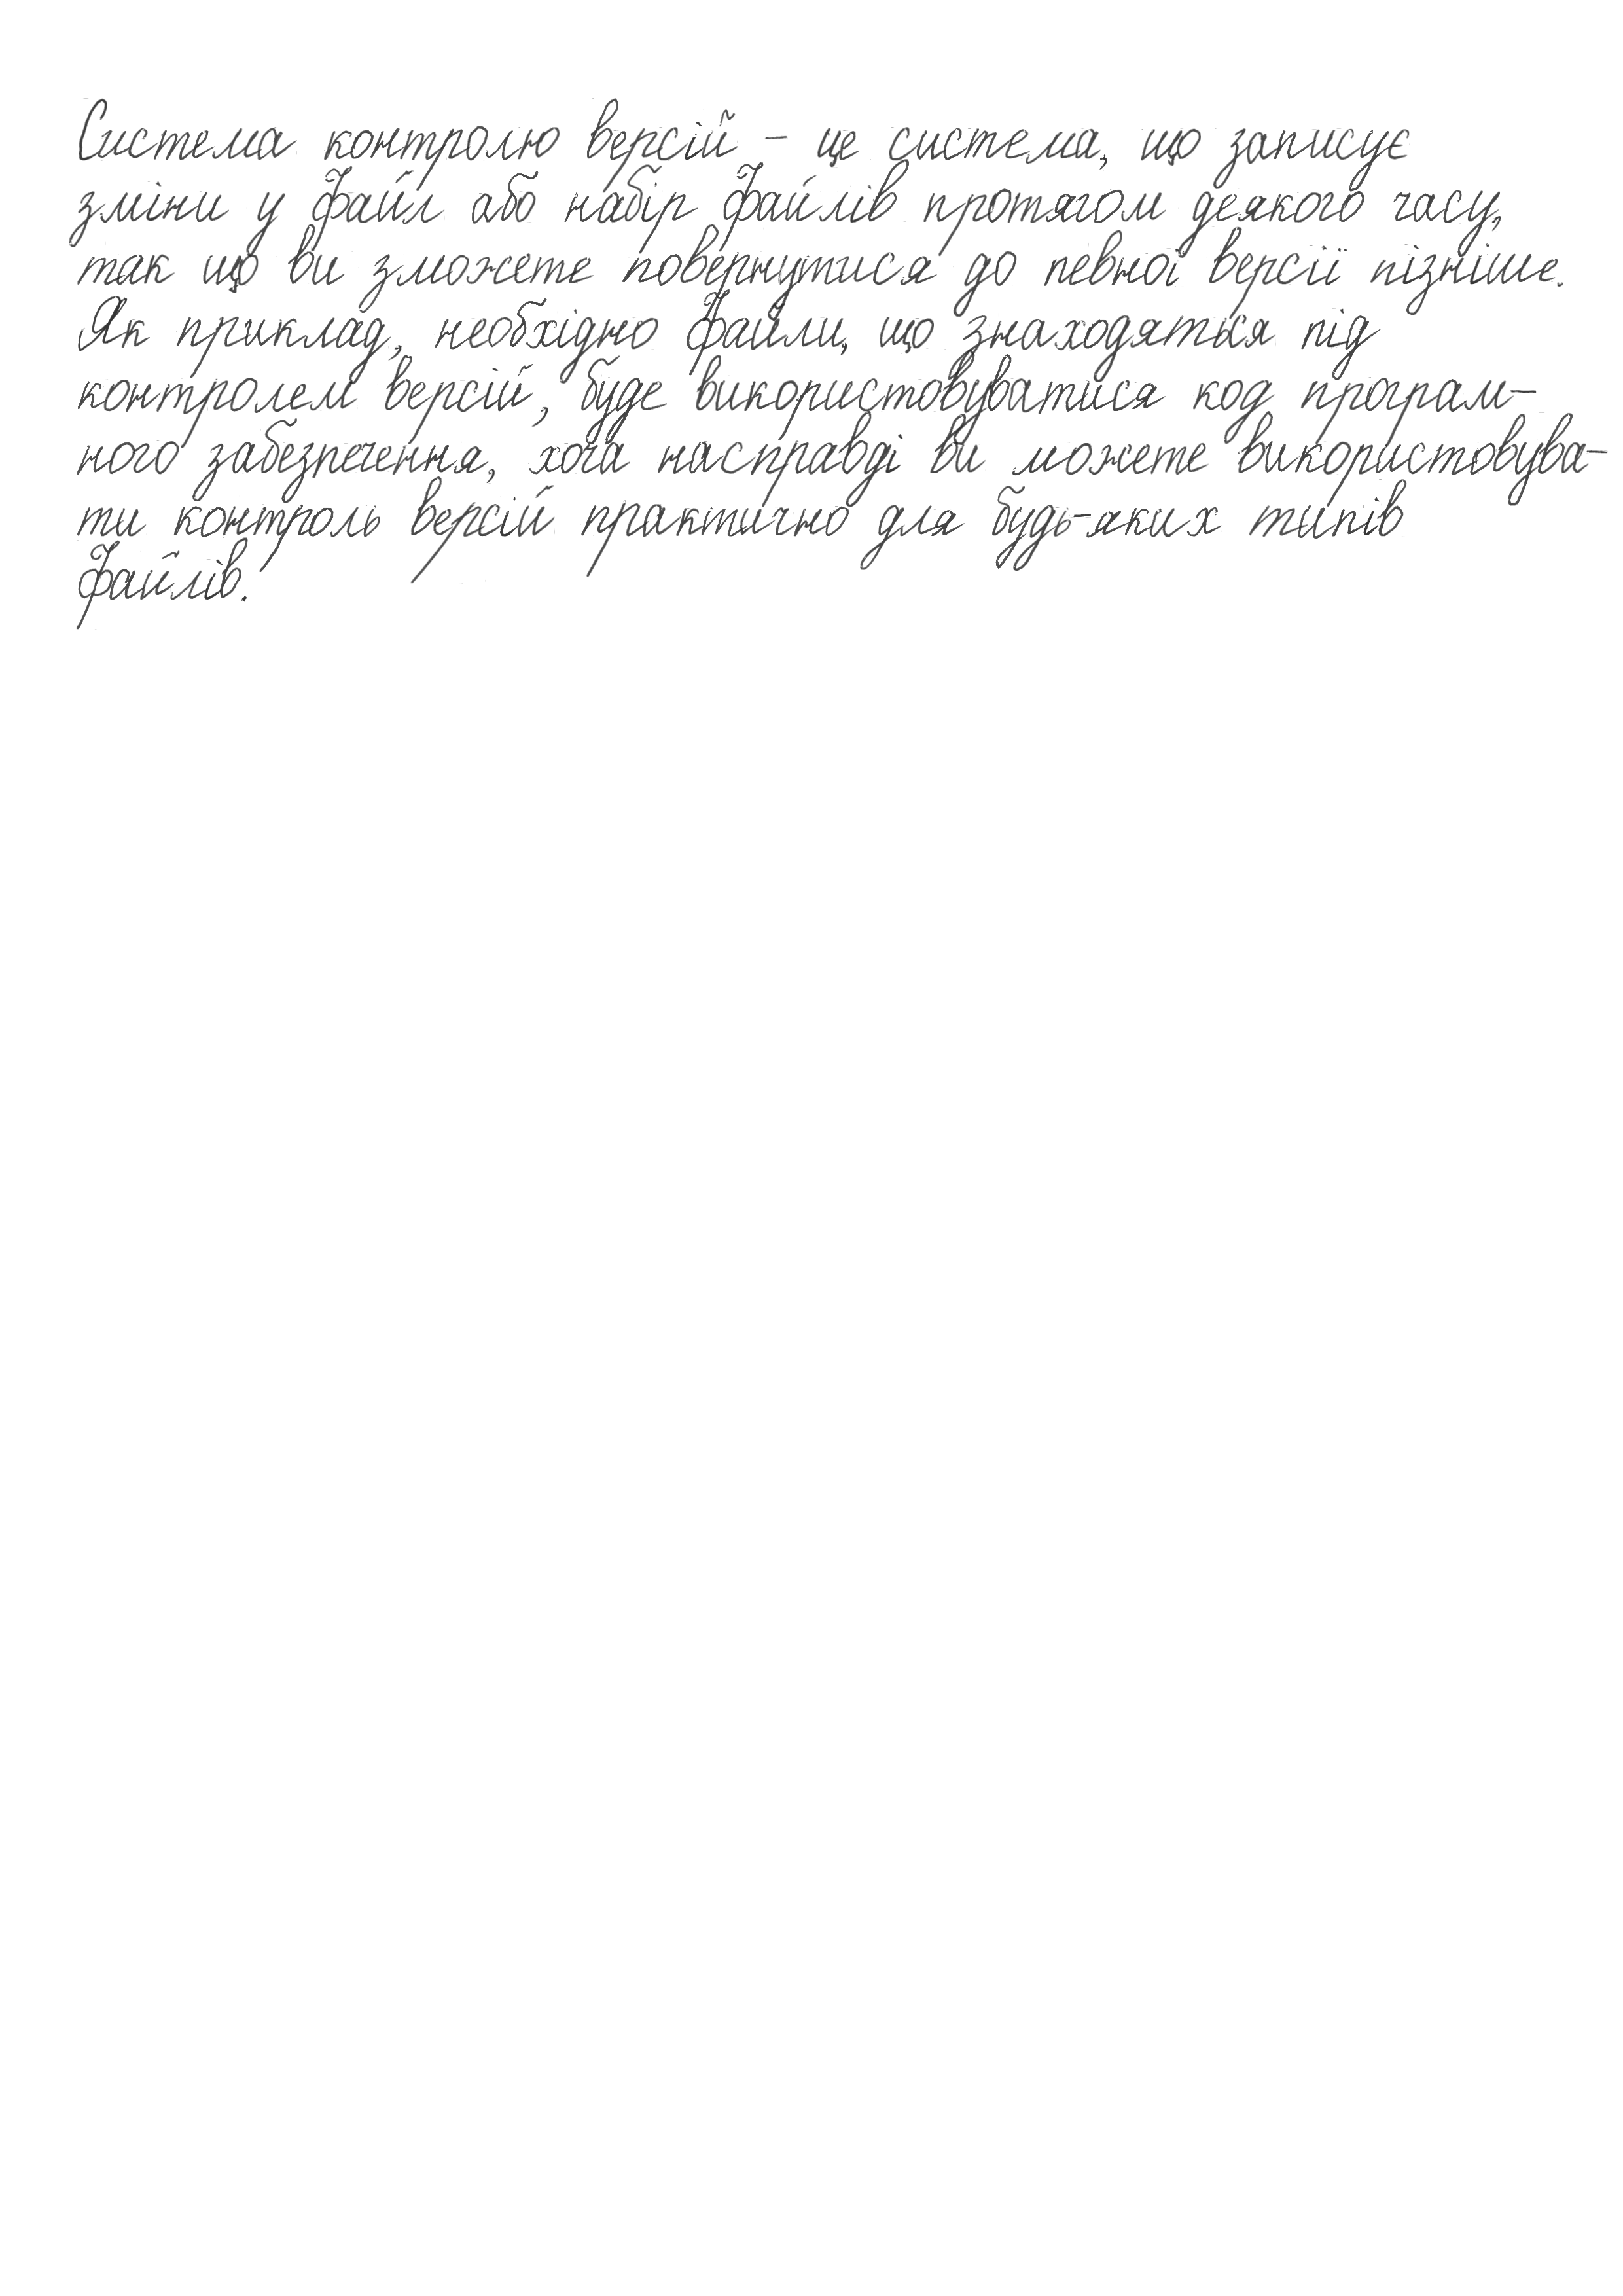 Система контролю версій – це система, що записує
зміни у файл або набір файлів протягом деякого часу,
так що ви зможете повернутися до певної версії пізніше.
Як приклад, необхідно файли, що знаходяться під
контролем версій, буде використовуватися код програм-
ного забезпечення, хоча насправді ви можете використовува-
ти контроль версій практично для будь-яких типів
файлів.